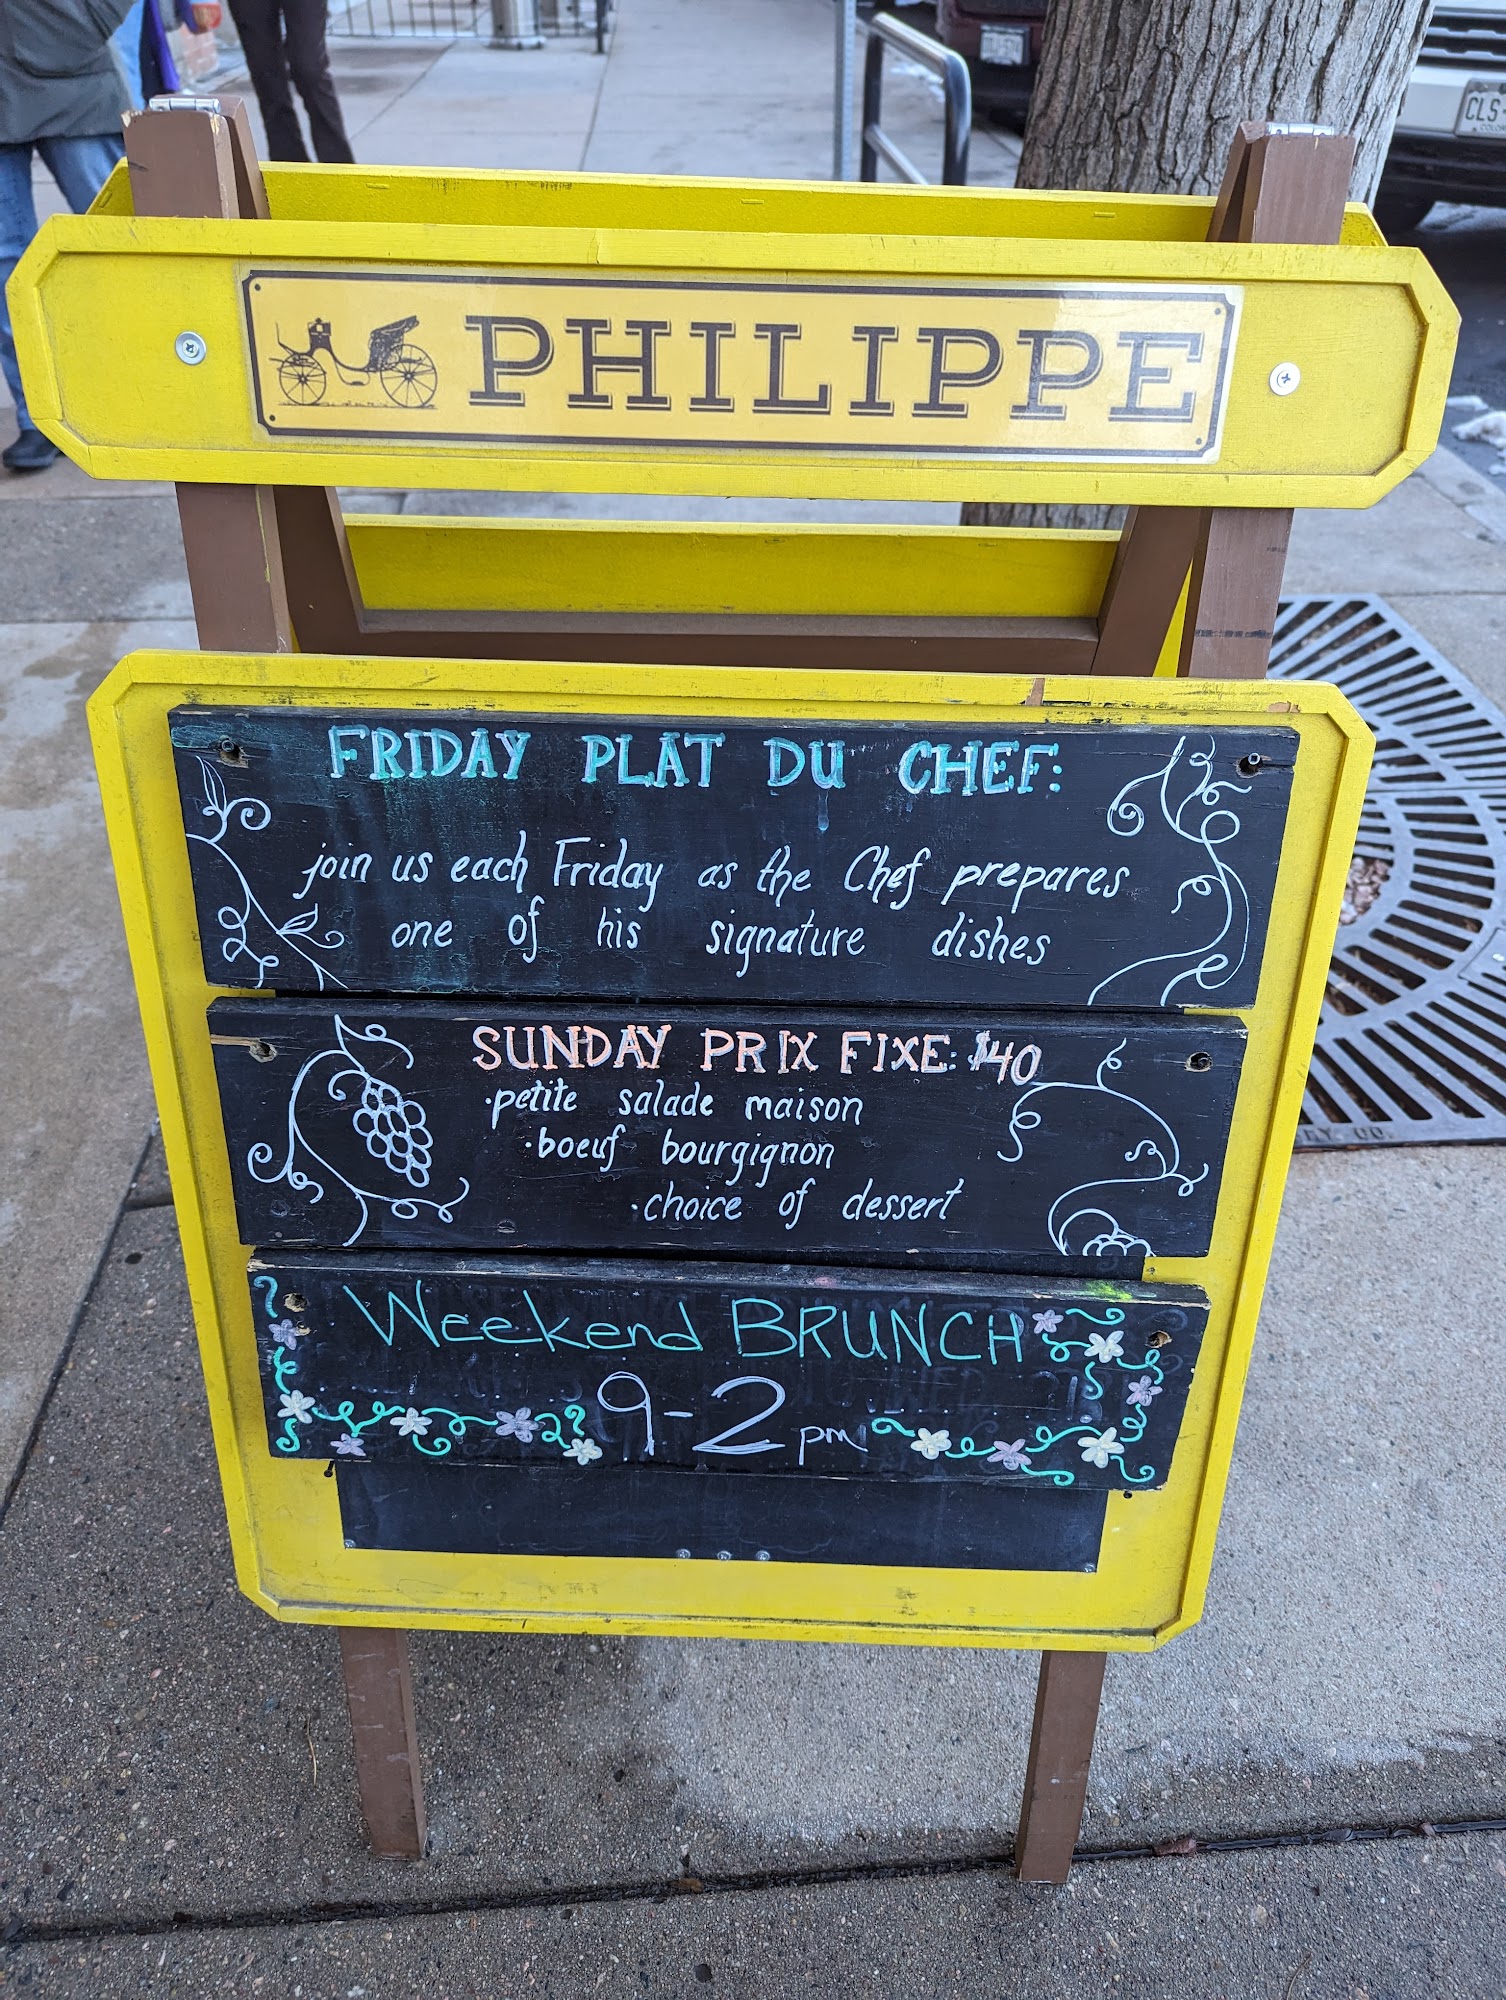 PHILIPPE
FRIDAY PLAT DU CHEF:
join us each Friday as the Chef prepares
one of his signature dishes
SUNDAY PRIX FIXE: $40
·petite salade maison
·boeuf bourgignon
·choice of dessert
Weekend BRUNCH
9-2 pm
CLS